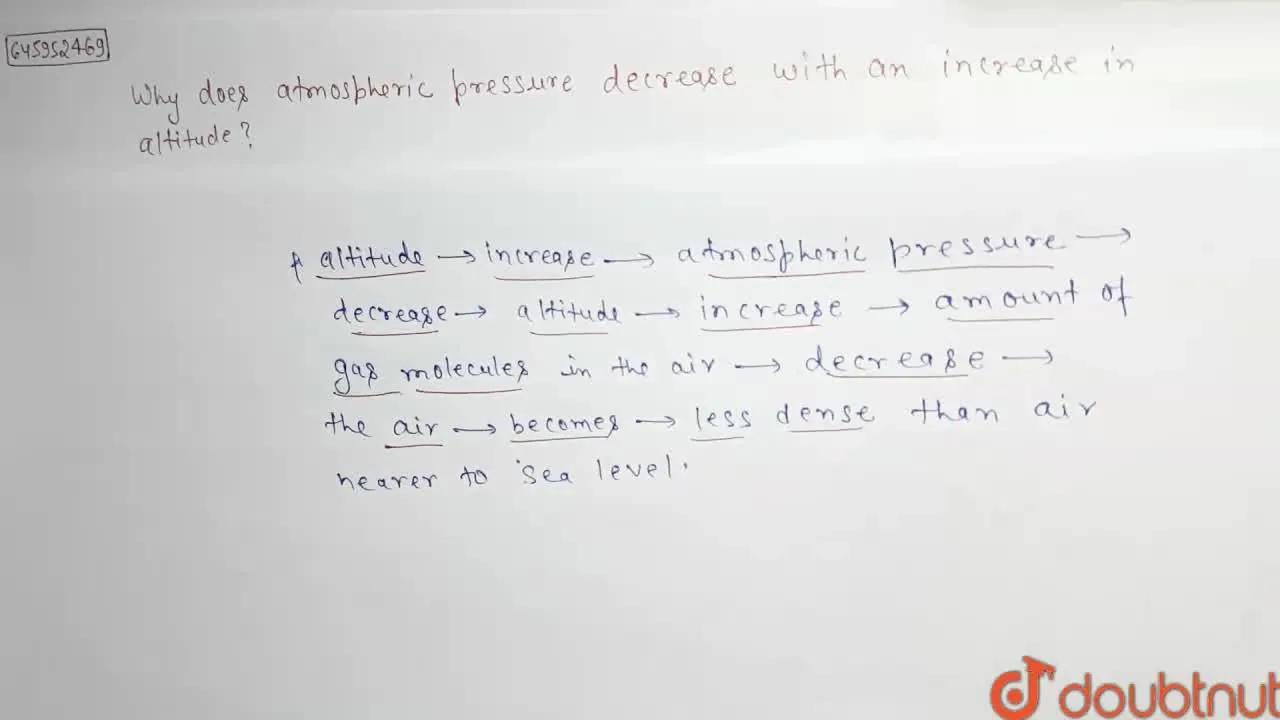 645952469
Why does atmospheric pressure decrease with an increase in
altitude?
* altitude → increase → atmospheric pressure →
decrease → altitude → increase → amount of
gas molecules in the air → decrease →
the air → becomes → less dense than air
nearer to sea level.
doubtnut